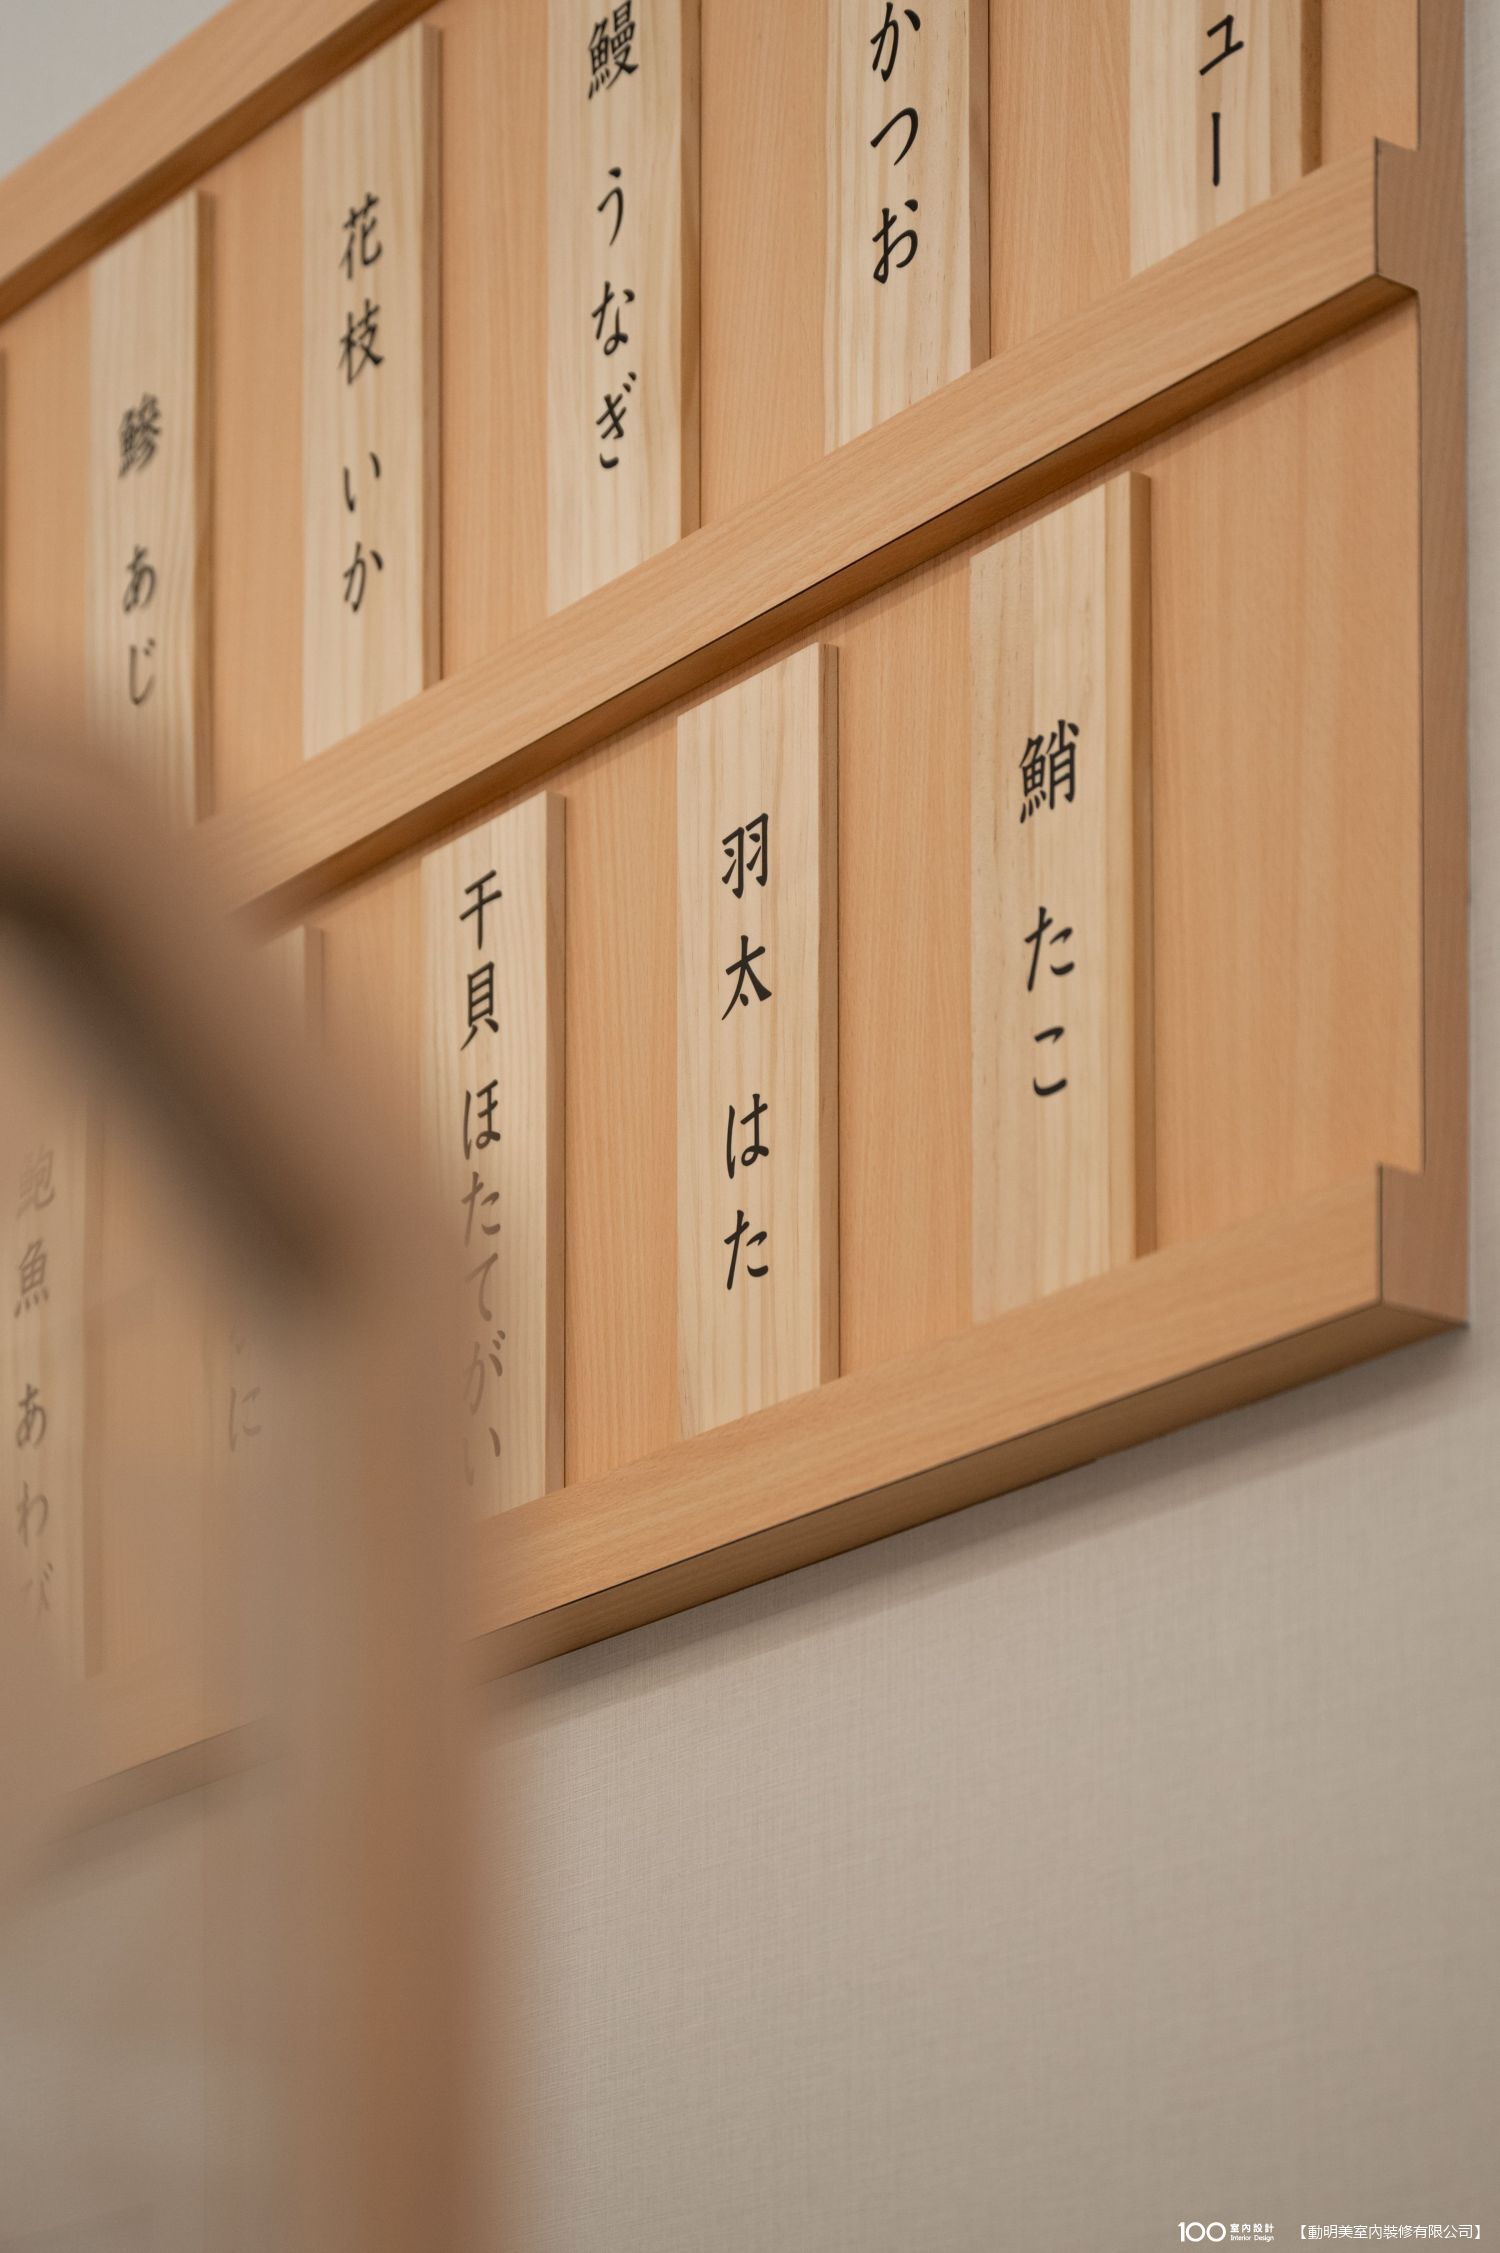 ュー
かつお
鰻 うなぎ
花枝 いか
鰺 あじ
鮹 たこ
羽太 はた
干貝 ほたてがい
に
鮑魚 あわび
100 室內設計 Interior Design
【動明美室內裝修有限公司】